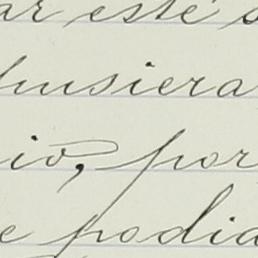 ar este
husiera
io, por
e podia